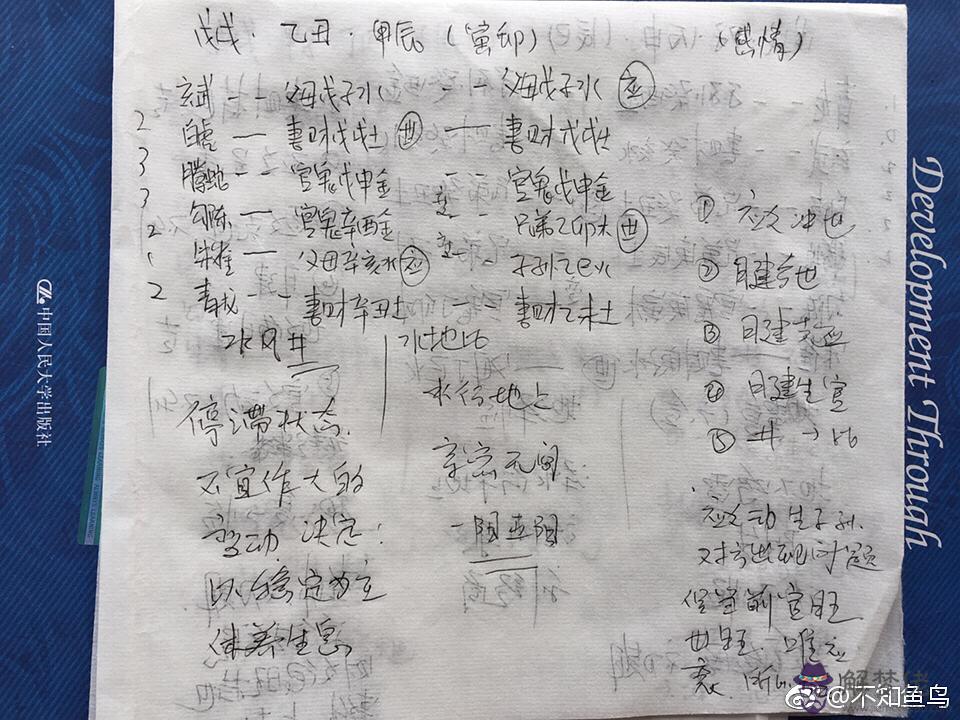 戊戌·乙丑·甲辰(寅卯) (感情)
玄武 -- 父母戊子水 -- 父母戊子水 应
2 白虎 — 妻财戊戌土 世 — 妻财戊戌土
3 腾蛇 -- 官鬼戊申金 -- 官鬼戊申金
3 勾陈 — 官鬼辛酉金 -- 兄弟乙卯木 世
2 朱雀 — 父母辛亥水 应 -- 子孙乙巳火
2 青龙 -- 妻财辛丑土 妻财乙未土
水风井 水地比
停滞状态.
不宜作大的
变动 决定:
以稳定为主
休养生息
水行地上
亲密无间
① 应爻冲世
② 日建合世
③ 日建克应
④ 日建生官
⑤ 井→比
应爻动生子孙.
对方出现问题
官旺
世旺 唯应
衰.
中国人民大学出版社
Development Through
@不知鱼鸟